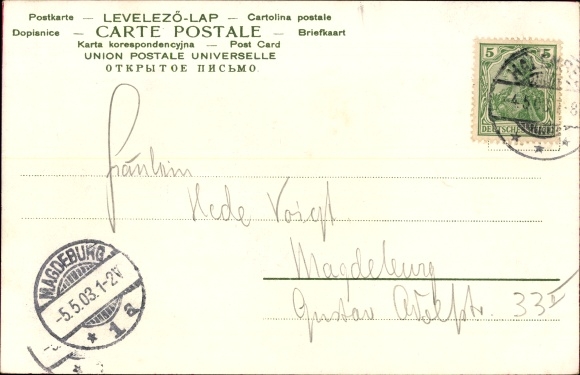 Postkarte — LEVELEZŐ-LAP — Cartolina postale
Dopisnice — CARTE POSTALE — Briefkaart
Karta korespondencyjna — Post Card
UNION POSTALE UNIVERSELLE
ОТКРЫТОЕ ПИСЬМО.
5 5
DEUTSCHES REICH
Fräulein
Hede Voigt
Magdeburg
Gustav Adolfstr. 33 II
MAGDEBURG
-5.5.03.1-2N
1 a